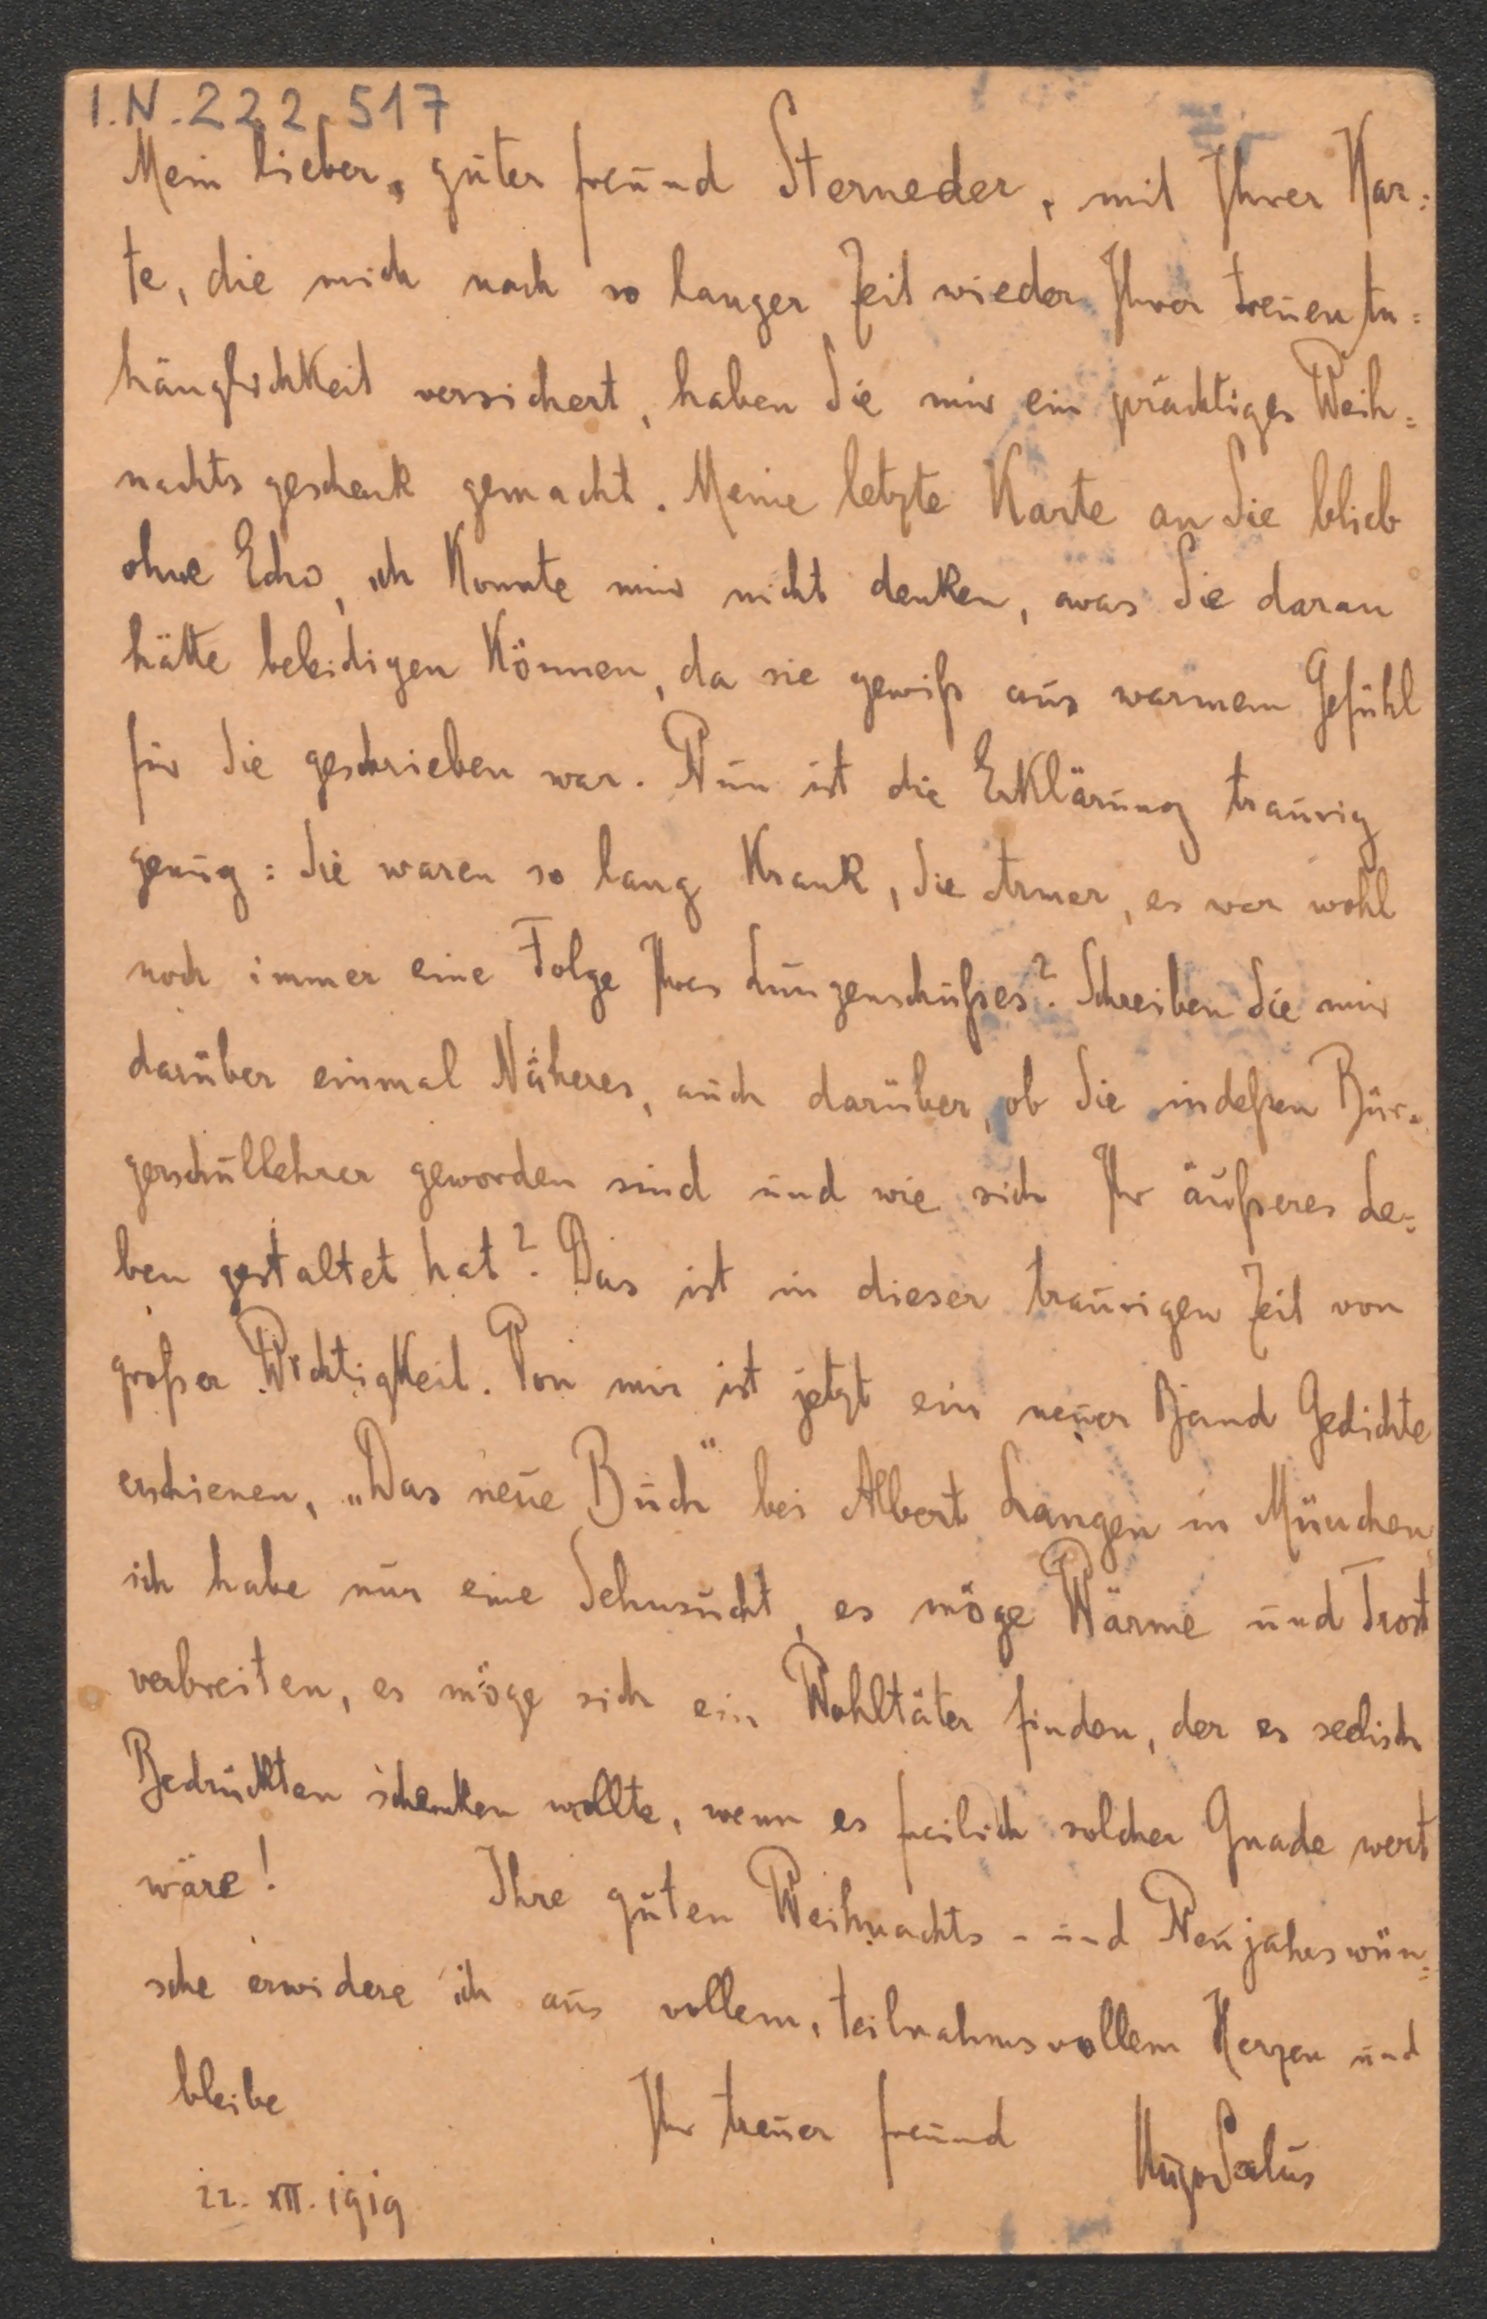 I.N. 222.517
Mein lieber, guter Freund Sterneder, mit Ihrer Kar=
te, die mich nach so langer Zeit wieder Ihrer treuen An=
hänglichkeit versichert, haben Sie mir ein prächtiges Weih=
nachtsgeschenk gemacht. Meine letzte Karte an Sie blieb
ohne Echo, ich konnte mir nicht denken, was Sie daran
hätte beleidigen können, da sie gewiß aus warmem Gefühl
für Sie geschrieben war. Nun ist die Erklärung traurig
genug: Sie waren so lang krank, Sie Armer, es war wohl
noch immer eine Folge Ihres Lungenschußes? Schreiben Sie mir
darüber einmal Näheres, auch darüber, ob Sie indeßen Bür=
gerschullehrer geworden sind und wie sich Ihr äußeres Le=
ben gestaltet hat? Das ist in dieser traurigen Zeit von
großer Wichtigkeit. Von mir ist jetzt ein neuer Band Gedichte
erschienen, „Das neue Buch" bei Albert Langen in München,
ich habe nur eine Sehnsucht, es möge Wärme und Trost
verbreiten, es möge sich ein Wohltäter finden, der es seelisch
Bedrückten schenken wollte, wenn es freilich solcher Gnade wert
wäre! Ihre guten Weihnachts- und Neujahrswün=
sche erwidere ich aus vollem, teilnahmsvollem Herzen und
bleibe
Ihr treuer Freund Hugo Salus
22. XII. 1919